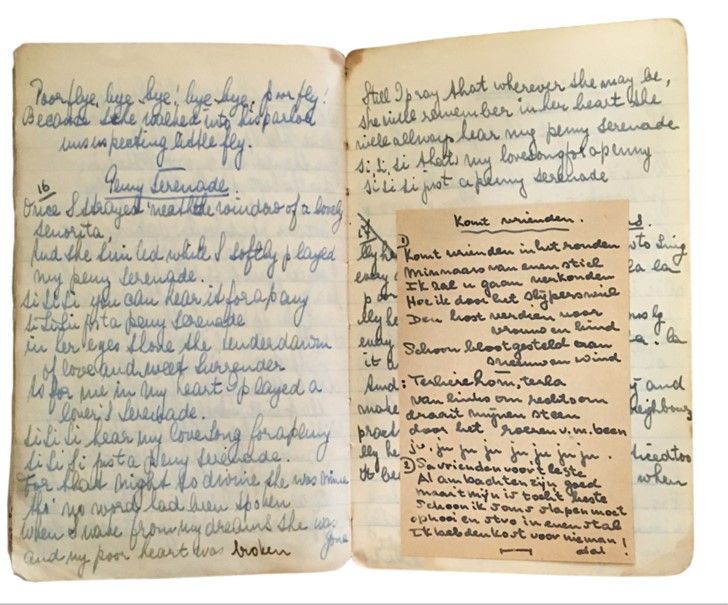 Poor flye, bye bye! bye bye, poor fly!
Because he walked into his parlor
unsuspecting little fly.
16
Penny Serenade.
Once I strayed 'neath the window of a lovely
Senorita,
And she smiled while I softly played
my peny serenade.
Si Si Si you can hear it for a pany
Si Si Si just a peny Serenade
in her eyes shone the tender dawn
of love and sweet surrender
so for me in my heart I played a
lover's Serenade.
Si Si Si hear my love song for a peny
Si Si Si just a peny serenade.
For that night so divine she was mine
tho' no word had been spoken
when I wake from my dreams she was
gone
and my poor heart was broken
Still I pray that wherever she may be,
she will remember in her heart she
will allways hear my peny serenade
Si, Si, Si that my lovesong for a penny
Si Si Si just a peny serenade
17
Komt vrienden.
1)
Komt vrienden in het ronden
Minnaars van enen stiel
Ik zal u gaan verkonden
Hoe ik door het slijperswiel
Den kost verdien voor
vrouw en kind
Schoon blootgesteld aan
sneeuw en wind
: Terliere hom, terla
van links om rechts om
draait mijnen steen
door het roeren v. m. been
ju. ju ju ju ju ju ju ju.
2) So vrienden voor 't leste
Al ambachten zijn goed
maar 't mijn is toch 't beste
Schoon ik soms slapen moet
op hooi en stro in enen stal
Ik heb den kost voor nieman!
dal
to sing
la la
la
and
neighbours
need too
when